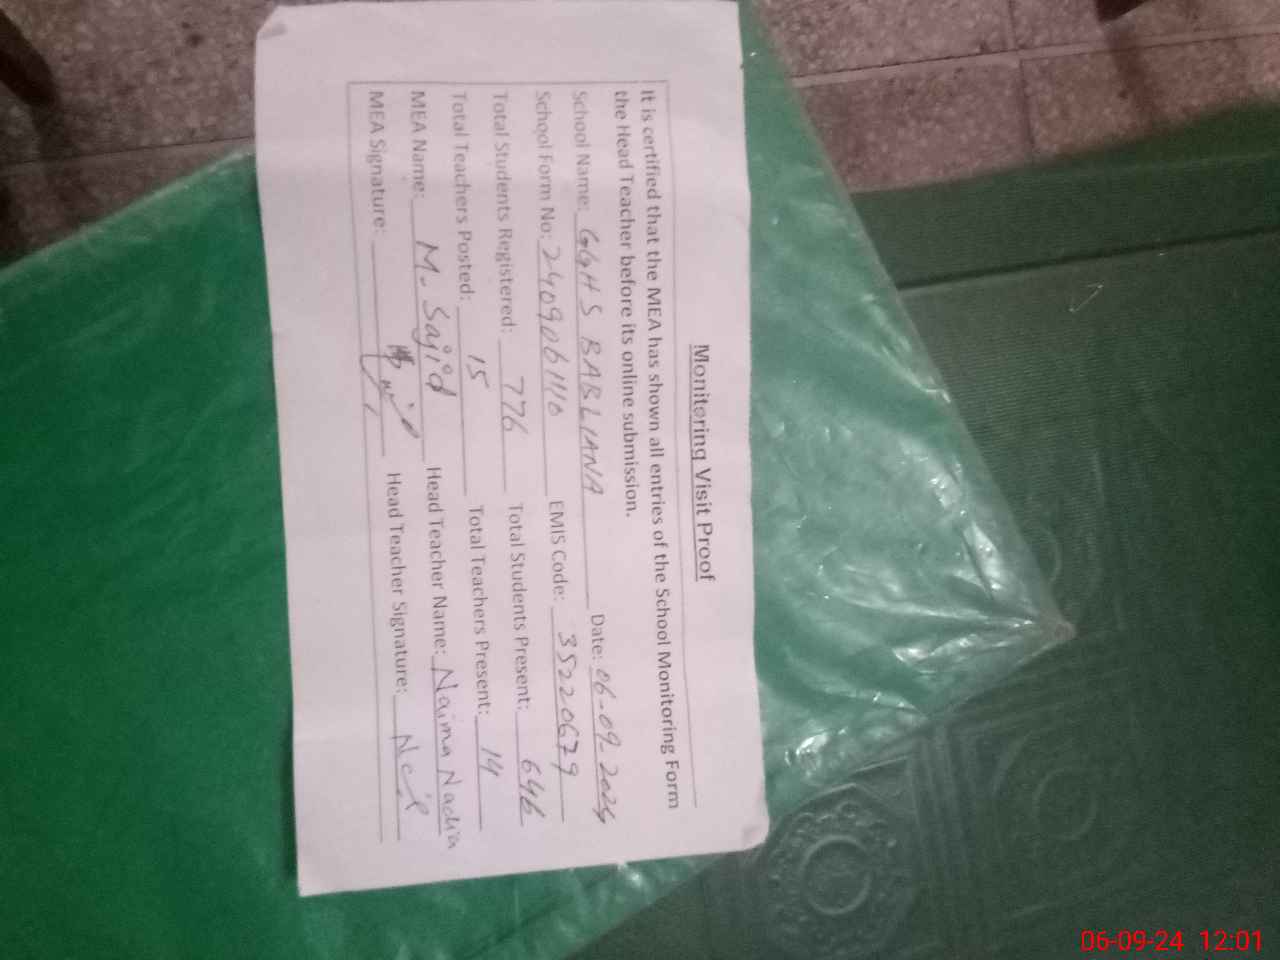 Monitoring Visit Proof
It is certified that the MEA has shown all entries of the School Monitoring Form
the Head Teacher before its online submission.
School Name: GGHS BABLIANA Date: 06-09-2024
School Form No: 2409061110 EMIS Code: 35220679
Total Students Registered: 776 Total Students Present: 646
Total Teachers Posted: 15 Total Teachers Present: 14
MEA Name: M. Sajid Head Teacher Name: Naima Nadia
MEA Signature: Head Teacher Signature:
06-09-24 12:01